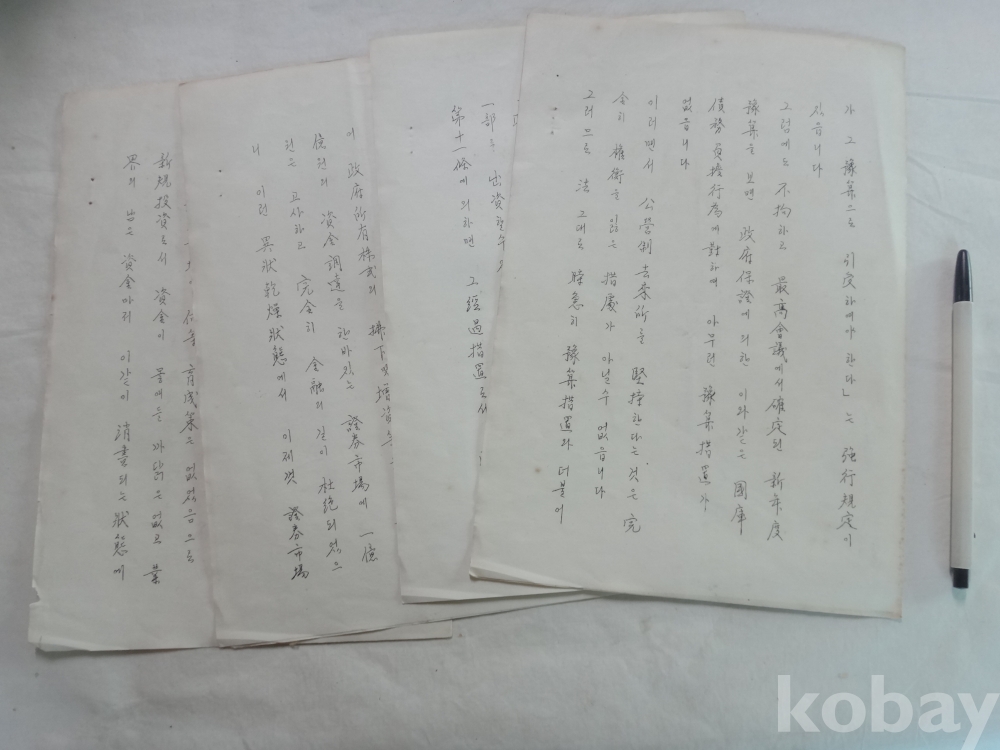 가 그 豫算으로 引受하여야 한다」는 强行規定이
있읍니다
그럼에도 不拘하고 最高會議에서 確定된 新年度
豫算을 보면 政府保證에 의한 이와같은 國庫
債務負擔行爲에 對하여 아무런 豫算措置가
없읍니다
이러면서 公營制去來所를 堅持한다는것은 完
全히 權衡을 잃은 措處가 아닐수 없읍니다
그러므로 法 그대로 時急히 豫算措置와 더불어
一部를 出資할수
第十一條에 의하면 그 經過措置로서
이 政府所有株式의 拂下 및 增資
億원의 資金調達을 한바있는 證券市場에 一億
원은 고사하고 完全히 金融의 길이 杜絶되었으
니 이런 異狀乾燥狀態에서 이제껏 證券市場
育成策은 없었음으로
新規投資로서 資金이 몰려들 까닭은 없고 業
界의 남은 資金마저 이같이 消盡되는 狀態에
kobay